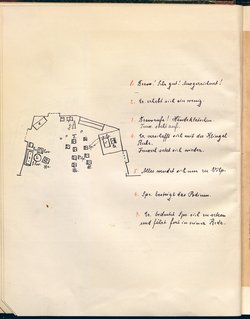 1. Bravo! Sehr gut! Ausgezeichnet!
2. Er erhebt sich ein wenig.
3. Bravorufe! Händeklatschen.
steht auf.
4. Er verschafft sich mit der Klingel
Ruhe.
setzt sich wieder.
5. Alles wendet sich nun zu
6. Spr. besteigt das Podium.
7. Er bedeutet Spr. sich zu setzen
und fährt fort in seiner Rede.